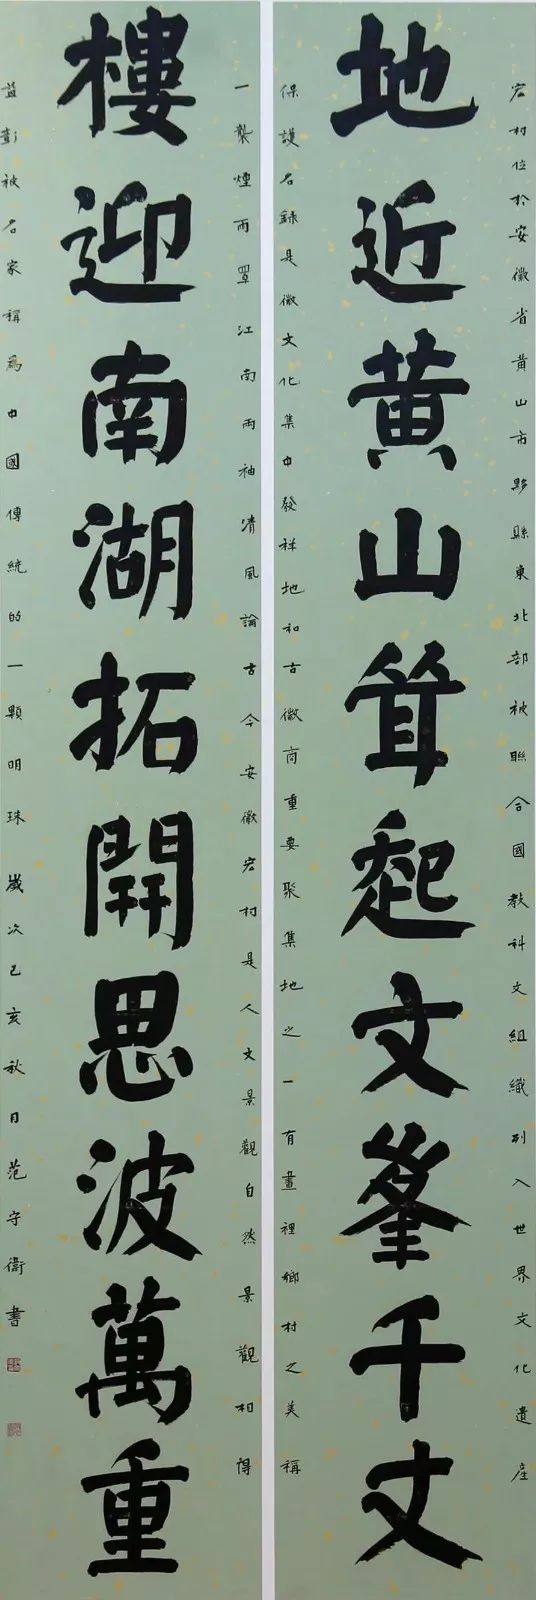 宏村位於安徽省黄山市黟縣東北部被聯合國教科文組織列入世界文化遺産
地近黄山耸起文峯千丈
保護名録是徽文化集中發祥地和古徽商重要聚集地之一有畫裡鄉村之美稱
一襲煙雨罩江南兩袖清風論古今安徽宏村是人文景觀自然景觀相得
樓迎南湖拓開思波萬重
益彰被名家稱爲中國傳統的一顆明珠歲次己亥秋月范守衛書